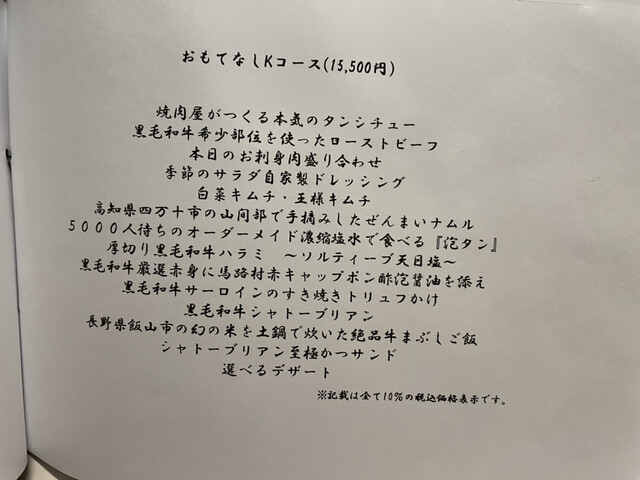 おもてなしKコース(15,500円)
焼肉屋がつくる本気のタンシチュー
黒毛和牛希少部位を使ったローストビーフ
本日のお刺身肉盛り合わせ
季節のサラダ自家製ドレッシング
白菜キムチ・王様キムチ
高知県四万十市の山間部で手摘みしたぜんまいナムル
5000人待ちのオーダーメイド濃縮塩水で食べる『泡タン』
厚切り黒毛和牛ハラミ ～ソルティーブ天日塩～
黒毛和牛厳選赤身に馬路村赤キャップポン酢泡醤油を添え
黒毛和牛サーロインのすき焼きトリュフかけ
黒毛和牛シャトーブリアン
長野県飯山市の幻の米を土鍋で炊いた絶品牛まぶしご飯
シャトーブリアン至極かつサンド
選べるデザート
※記載は全て10%の税込価格表示です。